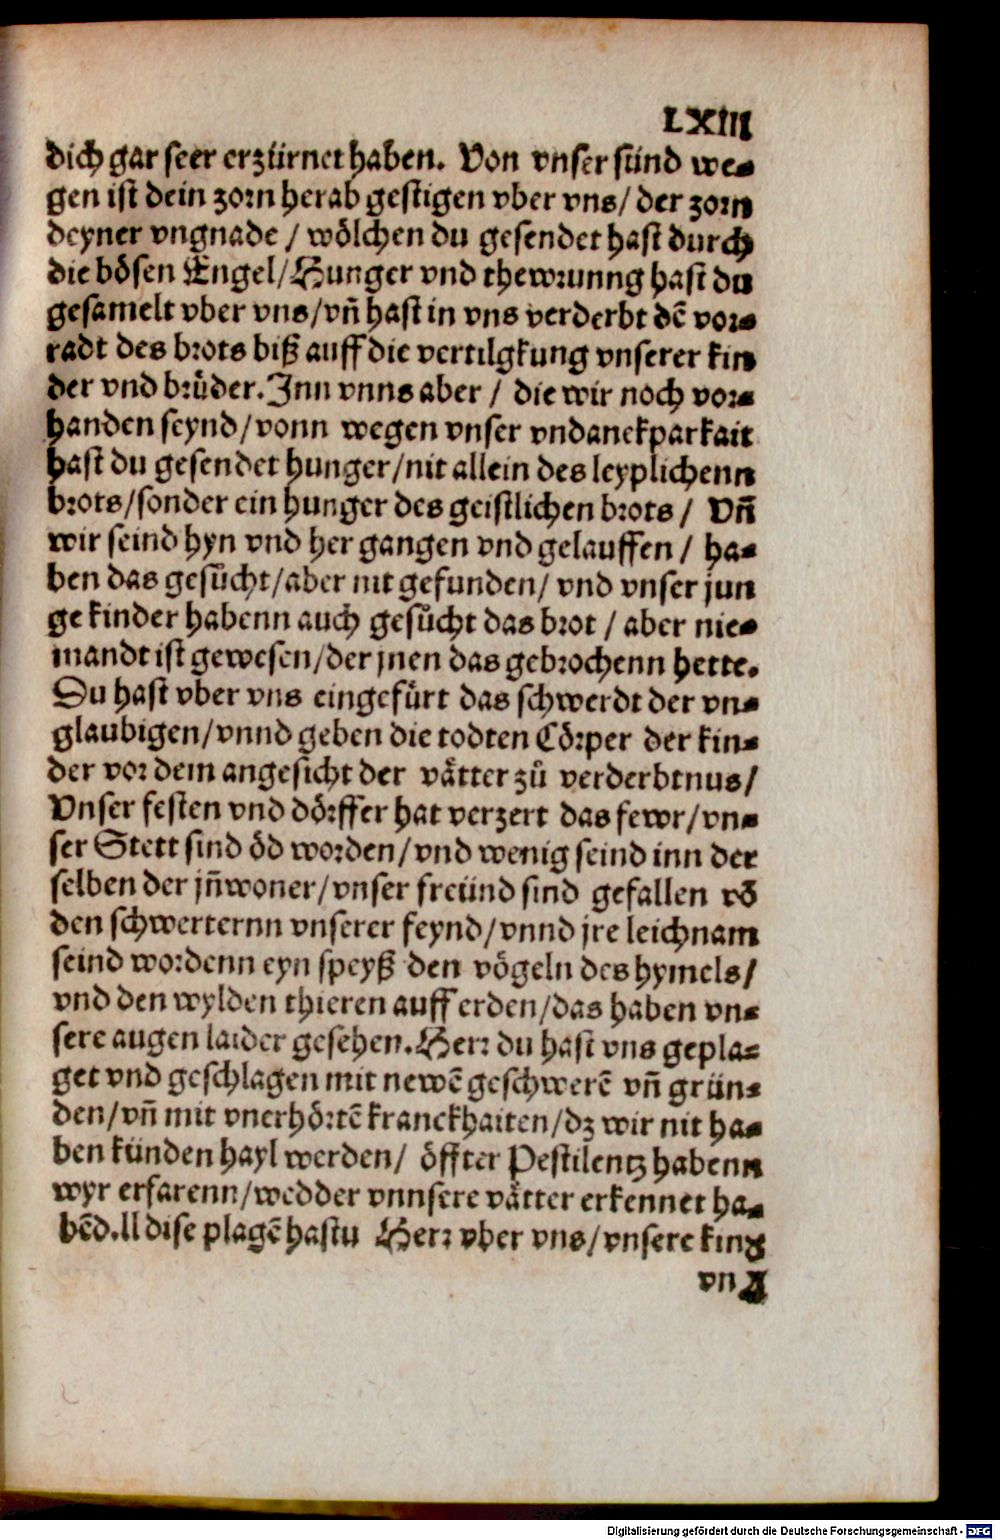 LXIII
dich gar seer erzürnet haben. Von vnser sünd we⸗
gen ist dein zorn herab gestigen vber vns/ der zorn
deyner vngnade / wölchen du gesendet hast durch
die bösen Engel/Hunger vnd thewrunng hast du
gesamelt vber vns/vñ hast in vns verderbt dẽ vor⸗
radt des brots biß auff die vertilgkung vnserer kin
der vnd brůder. Inn vnns aber / die wir noch vor⸗
handen seynd/vonn wegen vnser vndanckparkait
hast du gesendet hunger/nit allein des leyplichenn
brots/sonder ein hunger des geistlichen brots / Vñ
wir seind hyn vnd her gangen vnd gelauffen / ha⸗
ben das gesůcht/aber nit gefunden/ vnd vnser jun
ge kinder habenn auch gesůcht das brot / aber nie⸗
mandt ist gewesen/der jnen das gebrochenn hette.
Du hast vber vns eingefürt das schwerdt der vn⸗
glaubigen/vnnd geben die todten Cörper der kin⸗
der vor dem angesicht der vätter zů verderbtnus/
Vnser festen vnd dörffer hat verzert das fewr/vn⸗
ser Stett sind öd worden/vnd wenig seind inn der
selben der jñwoner/vnser freünd sind gefallen võ
den schwerternn vnserer feynd/vnnd jre leichnam
seind wordenn eyn speyß den vögeln des hymels/
vnd den wylden thieren auff erden/das haben vn⸗
sere augen laider gesehen. Herr du hast vns gepla⸗
get vnd geschlagen mit newẽ geschwerẽ vñ grün⸗
den/vñ mit vnerhörtẽ kranckhaiten/dz wir nit ha⸗
ben künden hayl werden/ öffter Pestilentz habenn
wyr erfarenn/wedder vnnsere vätter erkennet ha⸗
bẽd.ll dise plagẽ hastu Herr vber vns/vnsere kin
vn
Digitalisierung gefördert durch die Deutsche Forschungsgemeinschaft - DFG